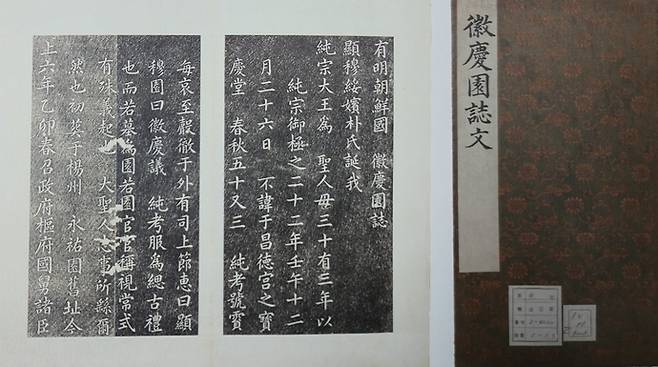 有明朝鮮國 徽慶園誌
顯穆綏嬪朴氏誕我
純宗大王爲 聖人母三十有三年以
純宗御極之二十二年壬午十二
月二十六日 不諱于昌德宮之寶
慶堂 春秋五十又三 純考號霣
每哀至聲徹于外有司上節惠曰顯
穆園曰徽慶議 純考服爲緦古禮
也而若墓爲園若園官官稱視常式
有殊義起也 大聖人
事所繇爾
然也初葬于楊州 永祐園舊址今
上六年乙卯春召政府樞府國舅諸臣
徽慶園誌文